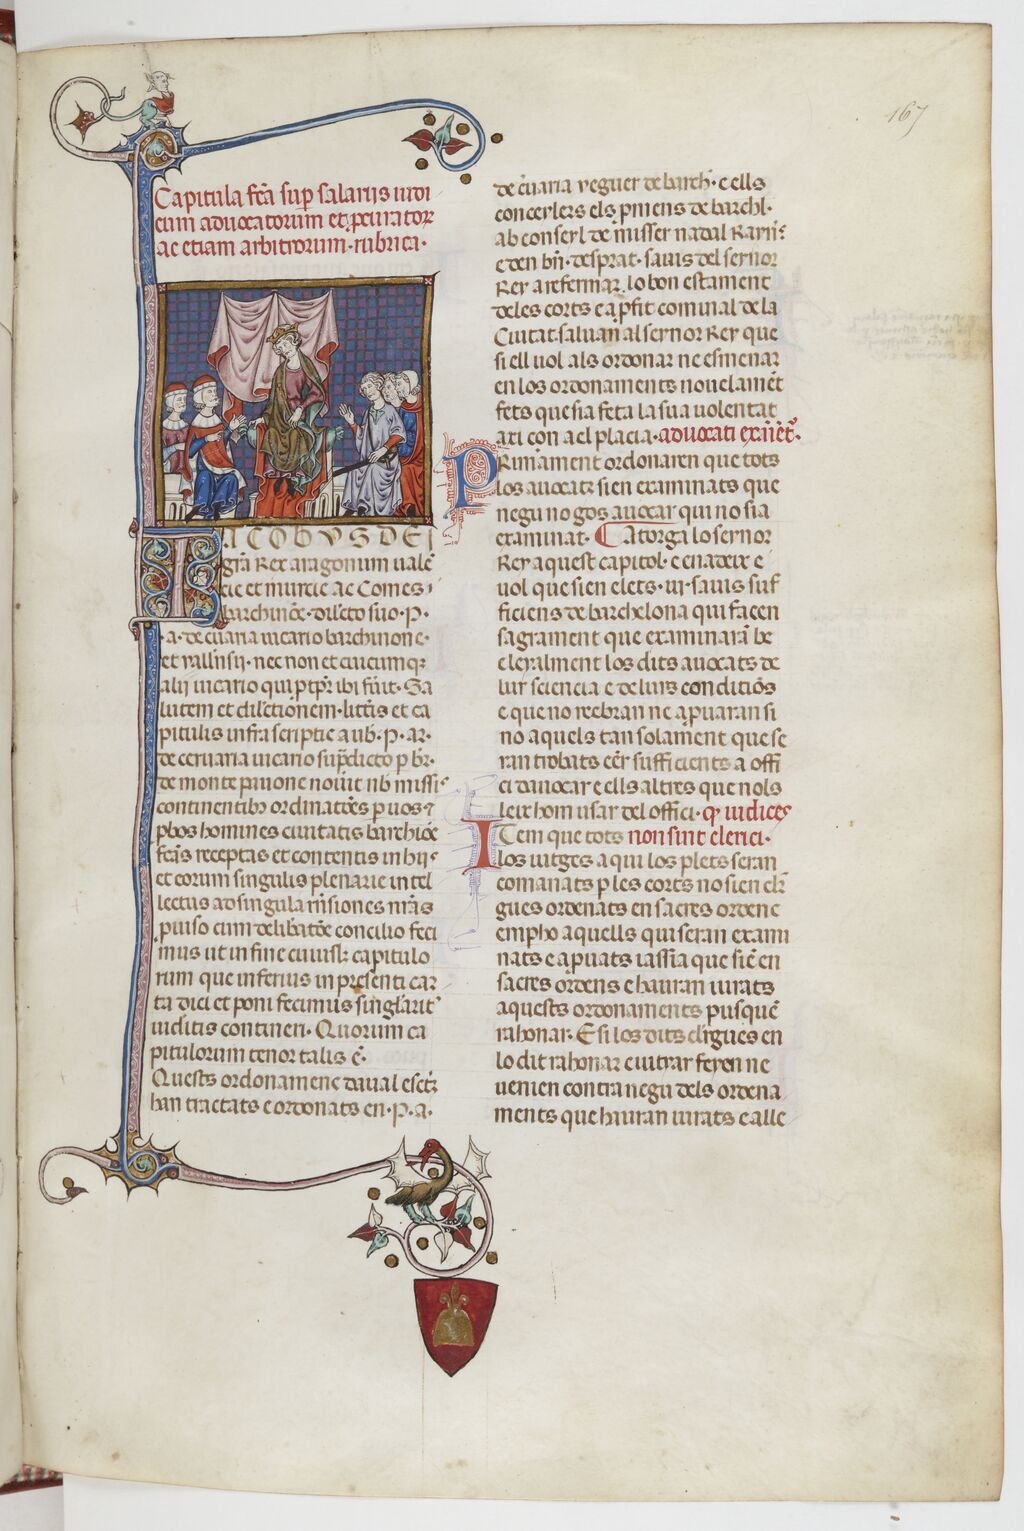 167
Capitula fc̃a sup̱ salarijs iudi
cum aduocatorum et p̱curatoꝝ
ac etiam arbitrorum · rubrica ·
IACOBUS DEI
gr̃a Rex aragonum uale
cie et murcie ac Comes
barchinõe · dilecto suo · P ·
· a · de c̃uaria uicario barchinone ·
et uallensij · nec non et cuicumqꝫ
alij uicario qui p̱ tp̃r ibi fũit · Sa
lutem et dilc̃tionem · litt̃is et ca
pitulis infra scriptis a uob̃ · P · ar ·
de ceruaria uicario sup̃dicto p̱ bñ ·
de monte pauone nouit̃ nb̃ missis
continentibꝰ ordinatões p̱ uos ⁊
p̱bos homines ciuitatis barchĩõe
fc̃as receptas et contentis in hijs
et eorum singulis plenarie intel
lectus ad singula
p̱uiso cum deliƀatõe concilio feci
mus ut in fine cuiuslꝫ capitulo
rum que inferius in presenti car
ta dici et poni fecimus singlãrit̃
uiditis contineri · Quorum ca
pitulorum tenor talis ẽ ·
Quests ordonamenc daual escr̃
han tractats e ordonats en · P · a ·
de c̃uaria ueguer de barch̃ · e ells
conceylers els p̱mens de barchl̃ ·
ab conseyl de misser nadal
e den bñ · desprat · sauis del senyor
Rey a refermar · lo bon estament
deles corts e a p̱fit comunal de la
Ciutat · saluan al seynor Rey que
si ell uol als ordonar ne esmenar
en los ordonaments nouelamẽt
fets que sia feta la sua uolentat
axi con a el placia · aduocati
Primãment ordonaren que tots
los auocatz sien examinats que
negu no gos auocar qui no sia
examinat · Catorga lo seynor
Rey aquest capitol · e enadeix e
uol que sien elets · sauis suf
ficiens de barchelona qui facen
sagrament que examinarã be
e leyalment los dits auocats de
lur sciencia e de lurs condiciõs
e que no reebran ne a p̱uaran si
no aquels tan solament que se
ran trobats eẽr sufficients a offi
ci dauocar e ells altres que nols
leix hom usar del offici · qꝫ iudices
ITem que tots non sint clerici ·
los iutges a qui los plets seran
comanats p̱ les corts no sien cler̃
gues ordenats en sacres ordenc
emp̱ho aquells qui seran exami
nats e a p̱uats iassia que siẽ en
sacres ordens e hauran iurats
aquests ordonaments pusquẽ
rahonar · E si los dits cl̃rgues en
lo dit rahonar e iutiar feyen ne
uenien contra negu dels ordena
ments que hauran iurats e alle